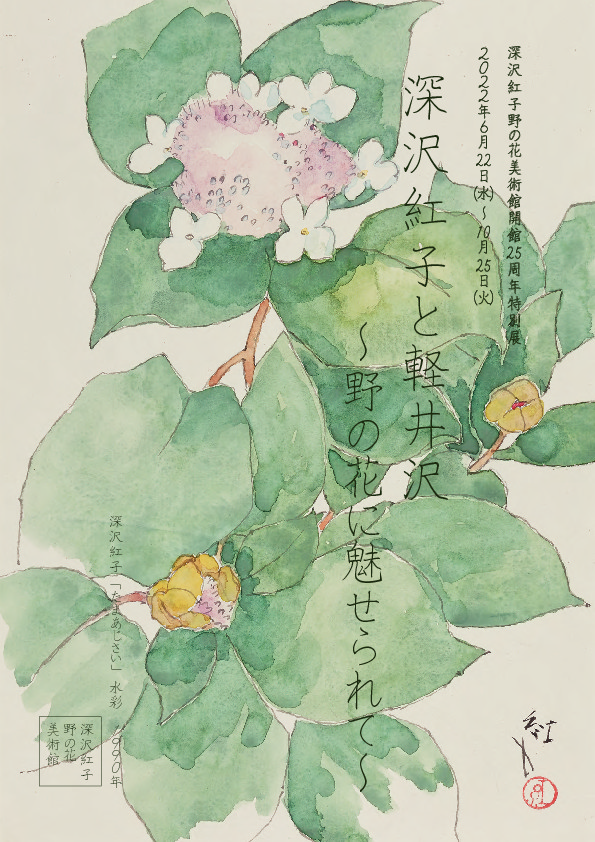 深沢紅子野の花美術館開館25周年特別展
2022年6月22日(水)～10月25日(火)
深沢紅子と軽井沢
～野の花に魅せられて～
深沢紅子「たまあじさい」 水彩 1990年
深沢紅子
野の花
美術館
紅
紅